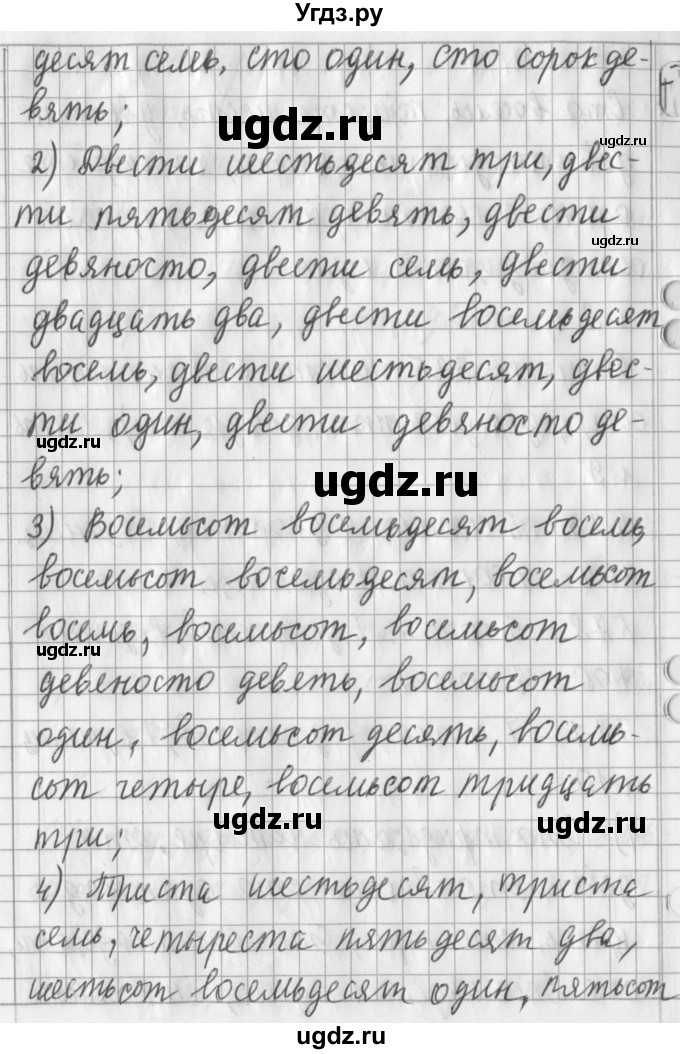 Угдз.ру
десят семь, сто один, сто сорок де-
вять;
ugdz.ru
ugdz.ru
2) Двести шестьдесят три, двес-
ти пятьдесят девять, двести
ugdz.ru
девяносто, двести семь, двести
двадцать два, двести восемьдесят
восемь, двести шестьдесят, двес-
ти один, двести девяносто де-
ugdz.ru
вять;
ugdz.ru
3) Восемьсот восемьдесят восемь,
восемьсот восемьдесят, восемьсот
восемь, восемьсот, восемьсот
ugdz.ru
девеносто деветь, восемьсот
один, восемьсот десять, восемь-
сот четыре, восемьсот тридцать
ugdz.ru
ugdz.ru
три;
4) Триста шестьдесят, триста
семь, четыреста пятьдесят два,
шестьсот восемьдесят один, пятьсот
ugdz.ru